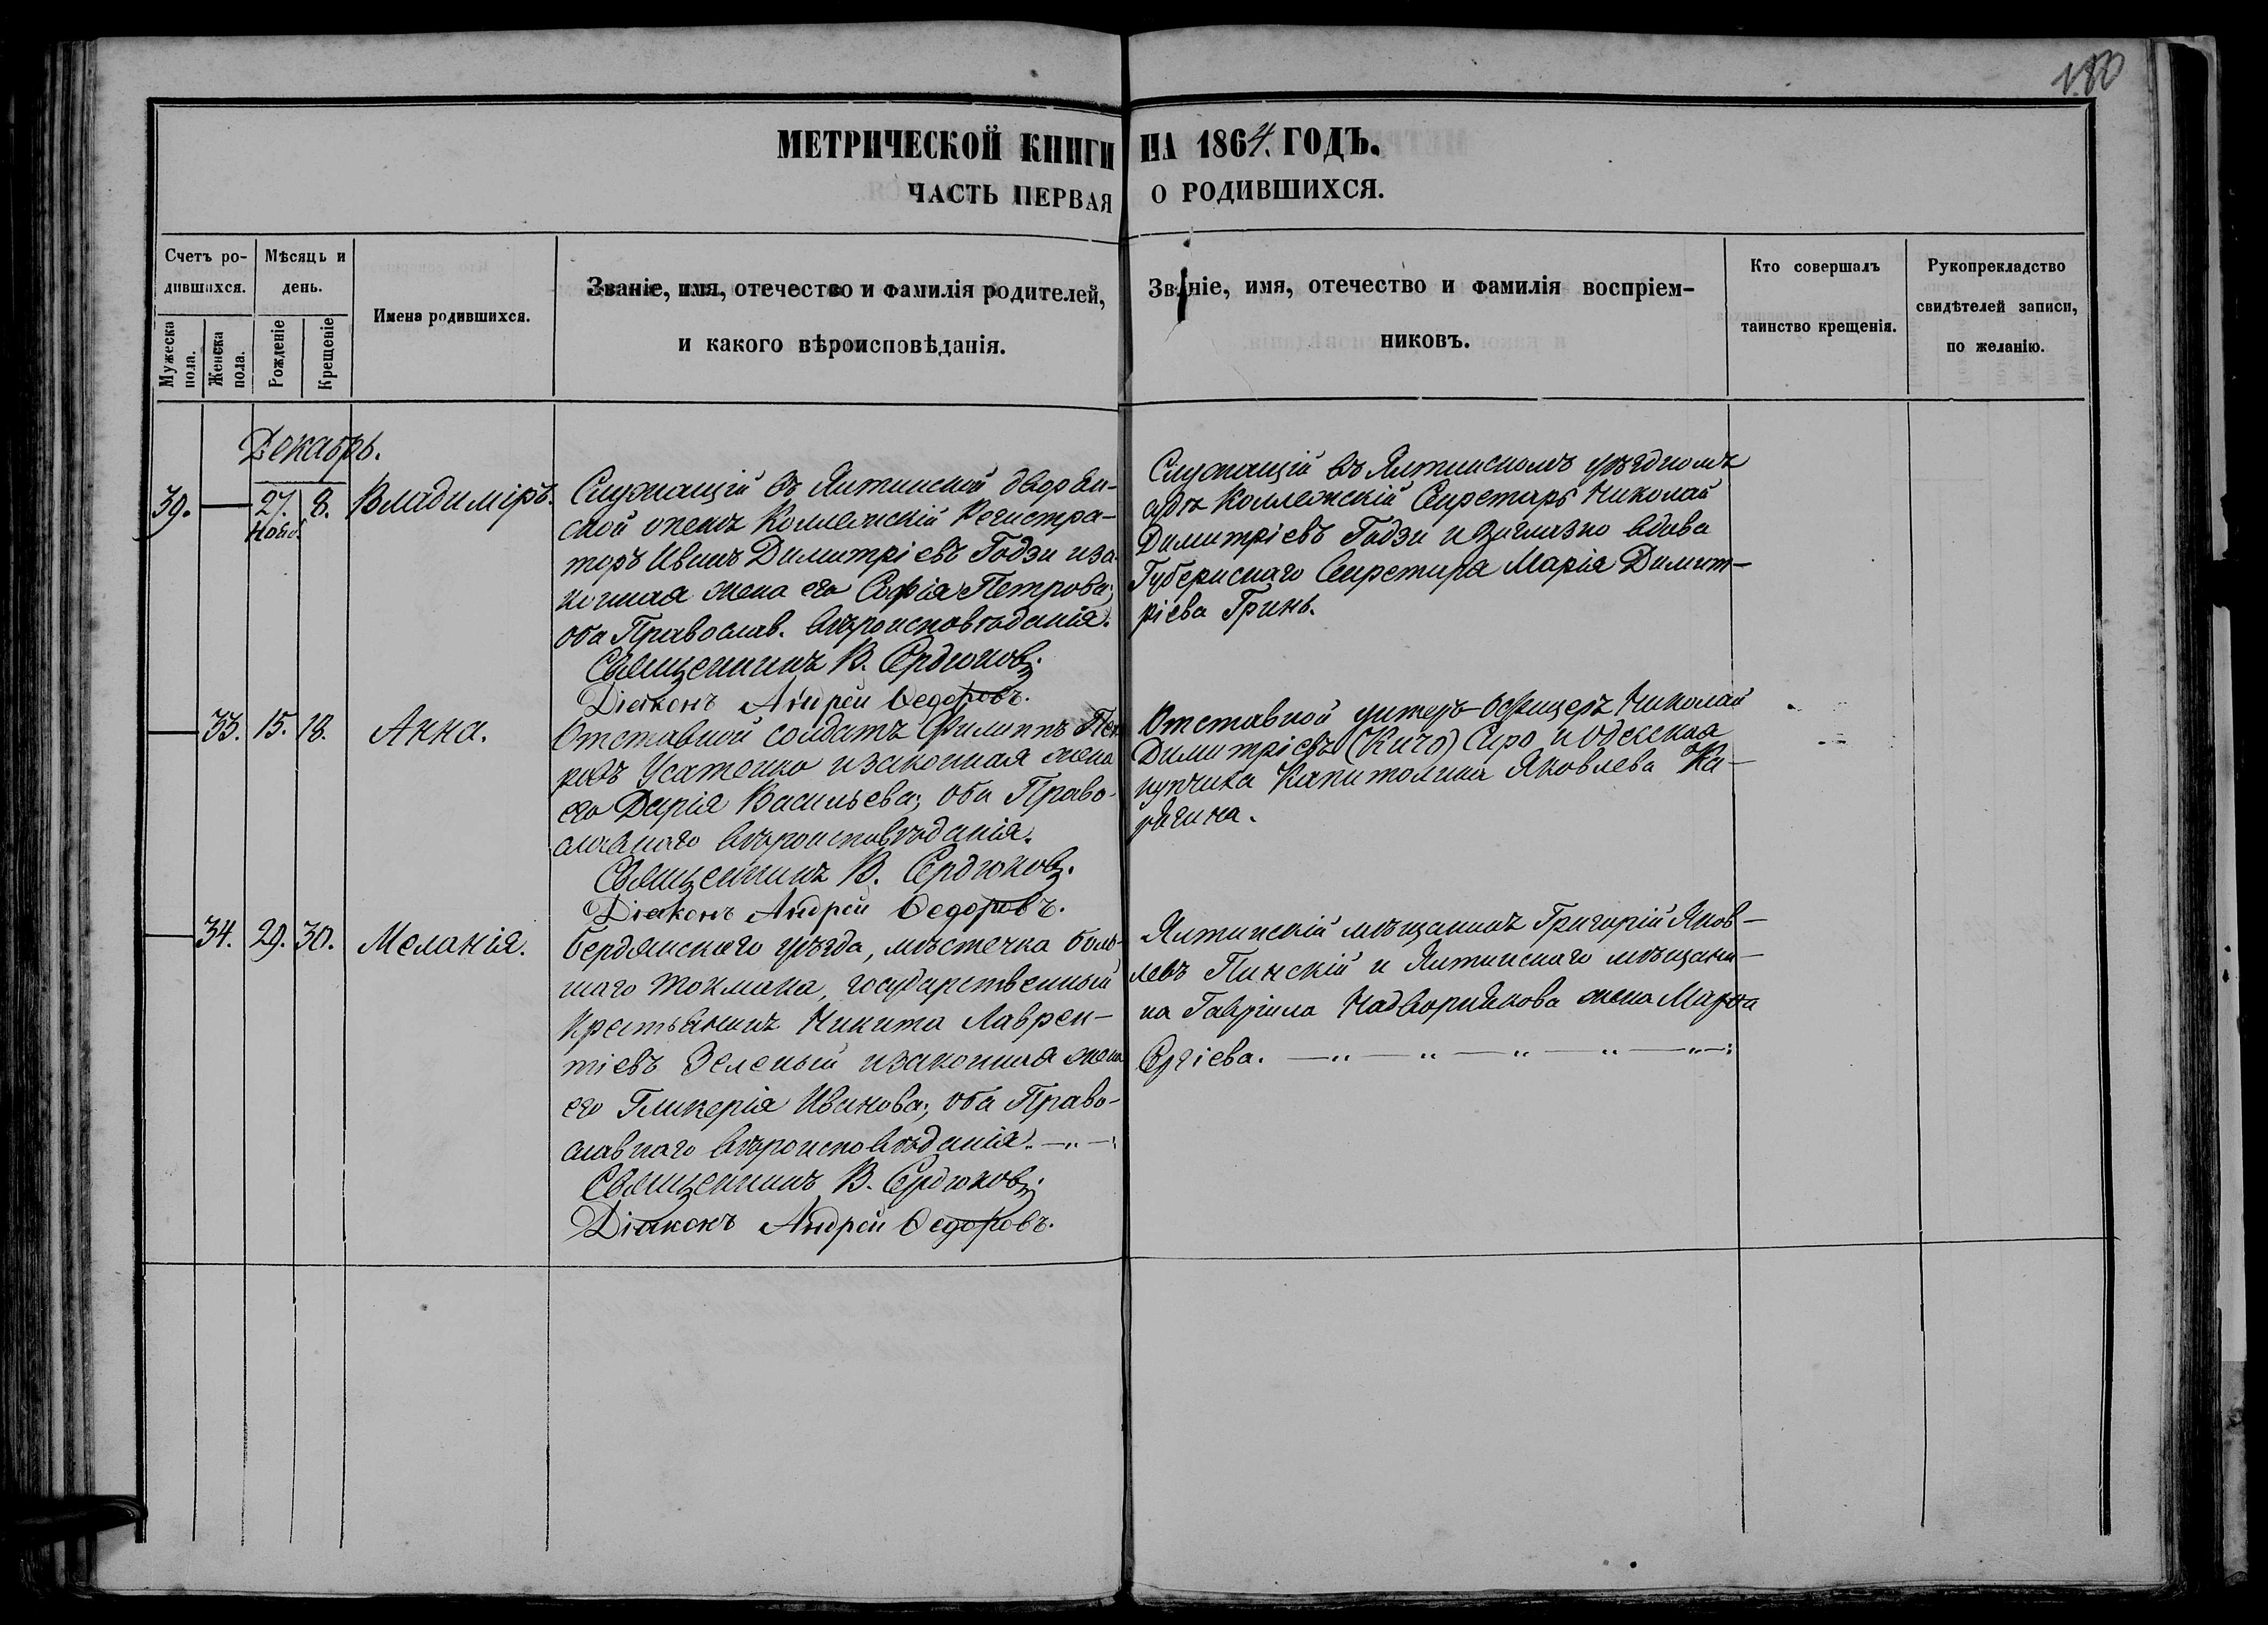 180
МЕТРИЧЕСКОЙ КНИГИ НА 1864. ГОДЪ.
ЧАСТЬ ПЕРВАЯ О РОДИВШИХСЯ.
Счетъ ро-
дившихся.
Мужеска
пола.
Женска
пола.
Мѣсяцъ и
день.
Рожденіе
Крещеніе
Имена родившихся.
Званіе, имя, отечество и фамилія родителей,
и какого вѣроисповѣданія.
Званіе, имя, отечество и фамилія воспріем-
никовъ.
Кто совершалъ
таинство крещенія.
Рукоприкладство
свидѣтелей записи,
по желанію.
Декабрь.
39. — 27. Нояб. 8. Владиміръ.
Служащій въ Ялтинской дворян-
ской опекѣ Коллежскій Регистра-
торъ Иванъ Димитріевъ Годзи и за-
конная жена его Софія Петрова;
оба Православ. вѣроисповѣданія.
Священникъ В. Сердюковъ.
Діаконъ Андрей Ѳедоровъ.
Служащій въ Ялтинскомъ уѣздномъ
судѣ Коллежскій Секретарь Николай
Димитріевъ Годзи и заглазно вдова
Губернскаго Секретаря Марія Димит-
ріева Гринь.
— 33. 15. 18. Анна.
Отставной солдатъ Филиппъ Пет-
ровъ Усатенко и законная жена
его Дарія Васильева; оба Право-
славнаго вѣроисповѣданія.
Священникъ В. Сердюковъ.
Діаконъ Андрей Ѳедоровъ.
Отставной унтеръ-офицеръ Николай
Димитріевъ (Кичо) Сиро и Одесская
купчиха Капитолина Яковлева Ка-
— 34. 29. 30. Меланія.
Бердянскаго уѣзда, мѣстечка Боль-
шаго Токмака, государственный
Крестьянинъ Никита Лаврен-
тіевъ Зеленый и законная жена
его Гликерія Иванова; оба Право-
славнаго вѣроисповѣданія.
Священникъ В. Сердюковъ.
Діаконъ Андрей Ѳедоровъ.
Ялтинскій мѣщанинъ Григорій Яков-
левъ Пинскій и Ялтинскаго мѣщани-
на Гавріила Надворнякова жена Марѳа
Сергіева.